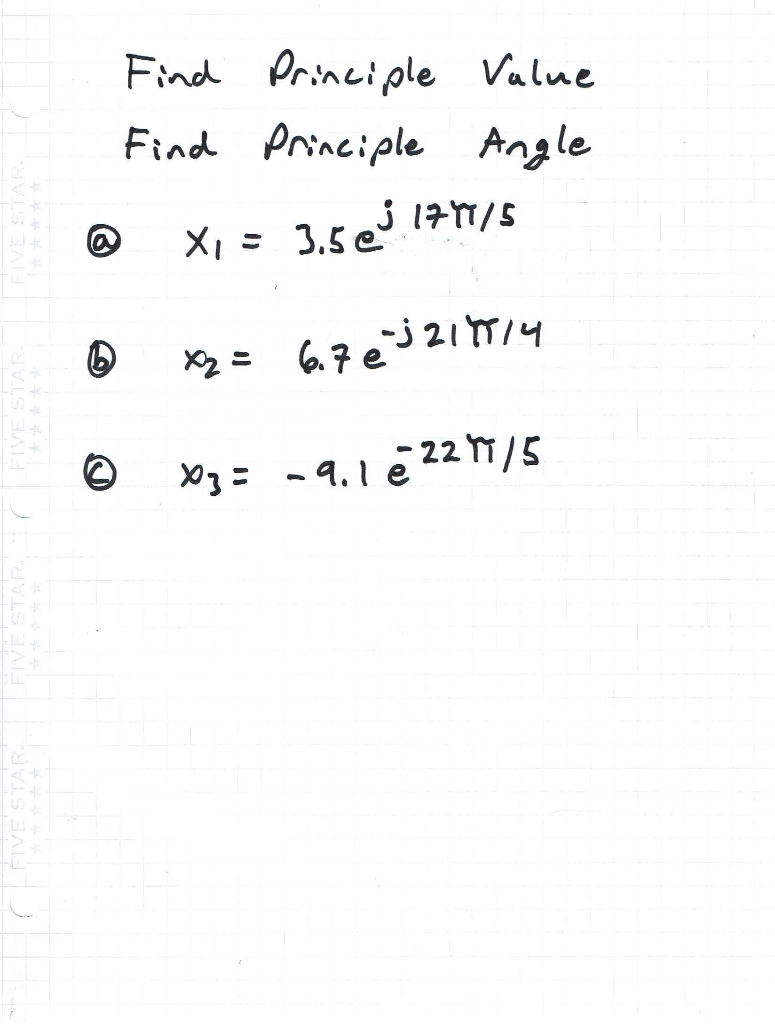 Find Principle Value
Find Principle Angle
ⓐ x₁ = 3.5 e^{j 17π/5}
ⓑ x₂ = 6.7 e^{-j 21π/4}
ⓒ x₃ = -9.1 e^{-22π/5}
FIVE STAR.
FIVE STAR.
FIVE STAR.
FIVE STAR.